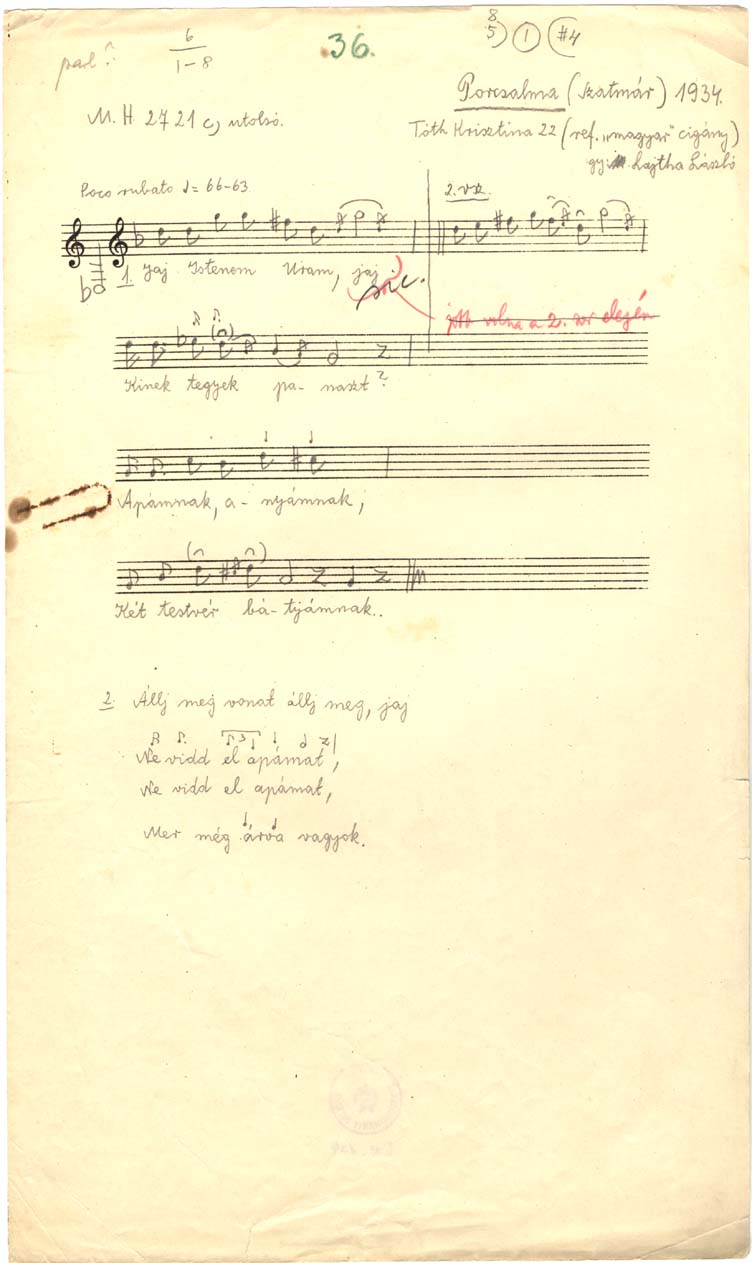 parl
6
1-8
36.
8
5) 1 (#4
Porcsalma (Szatmár) 1934.
M. H. 2721 c, utolsó.
Tóth Krisztina 22 (ref. „magyar" cigány)
gy. Lajtha László
Poco rubato ♩= 66-63
2. vsz.
1. Jaj Istenem Uram, jaj
sic.
jött volna a 2. sor elején
Kinek tegyek pa- naszt?
Apámnak, a- nyámnak,
Két testvér bá- tyámnak..
2. Állj meg vonat állj meg, jaj
3
Ne vidd el apámat,
Ne vidd el apámat,
Mer még árva vagyok.